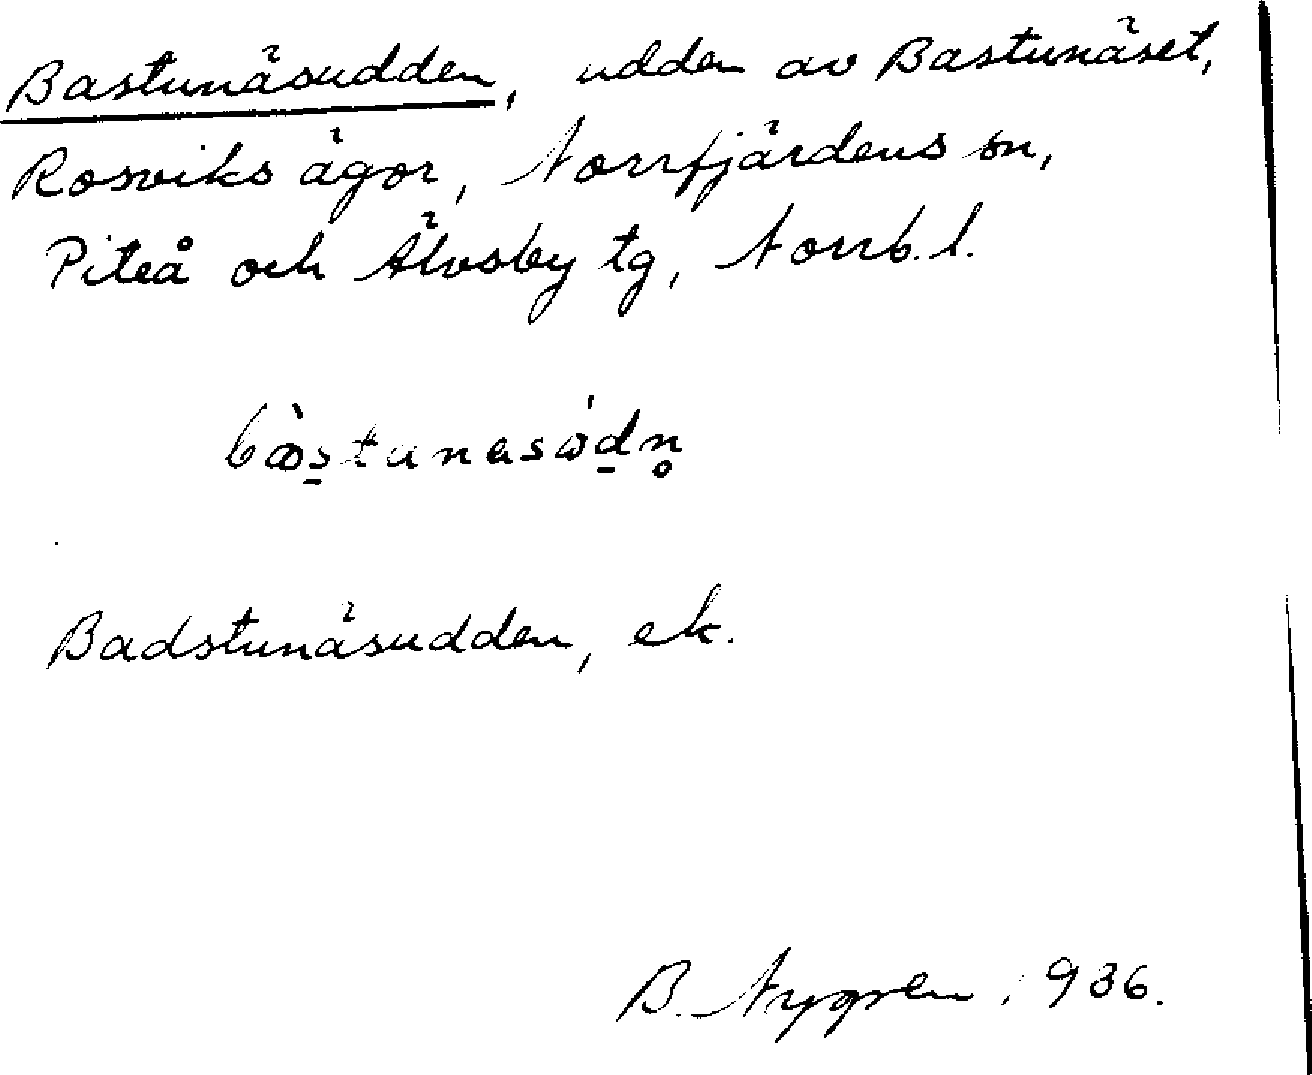 Bastunäsudden, udden av Bastunäset,
Rosviks ägor, Norrfjärdens sn,
Piteå och Älvsby tg, Norrb. l.
Badstunäsudden, ek.
B. Nygren 1936.